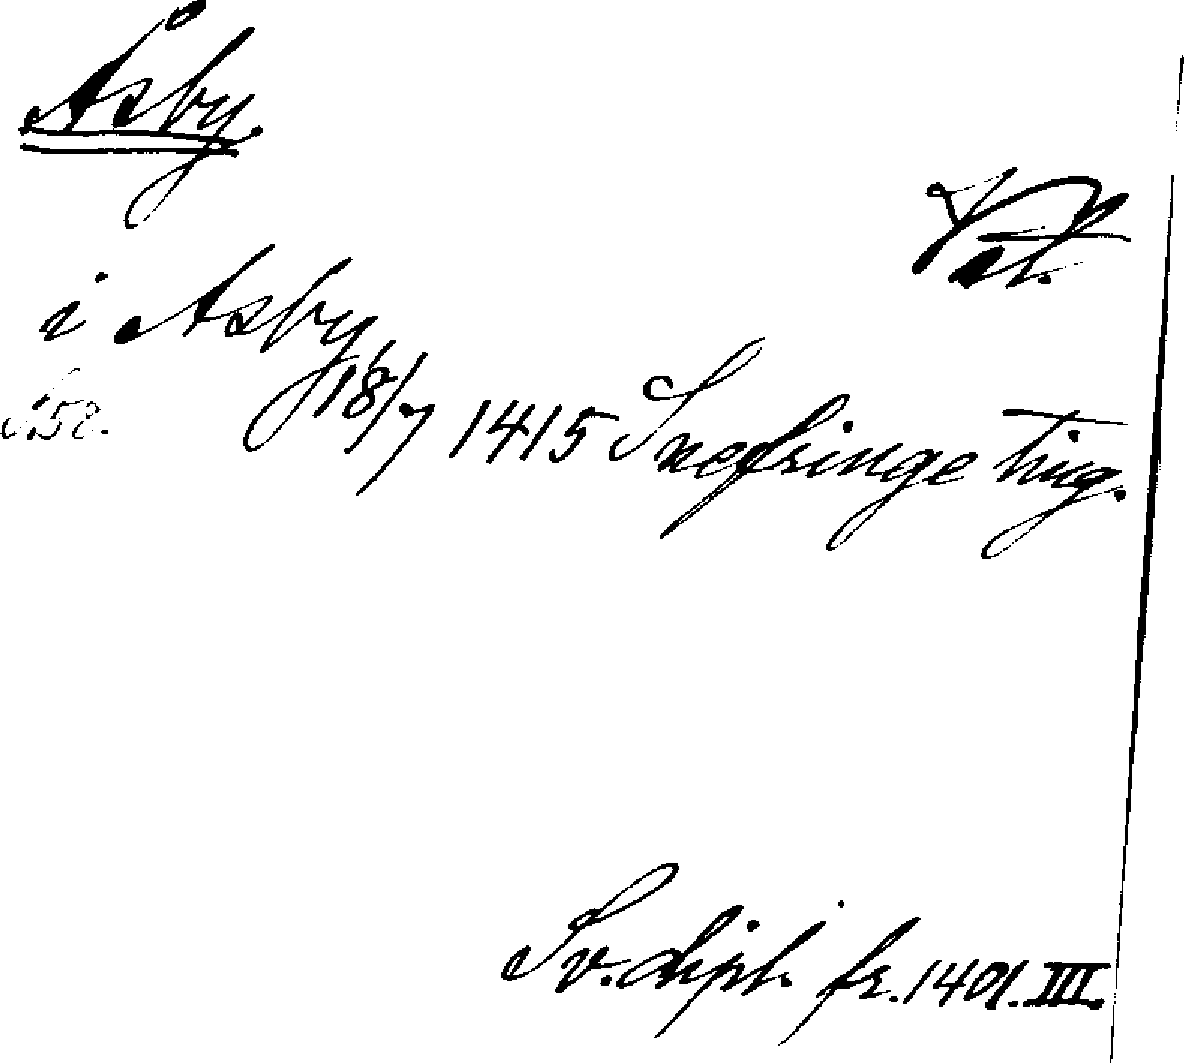 Åsby.
i Asby 18/7 1415 Snefringe ting.
S. 52.
Sv. dipl. fr. 1401. III.